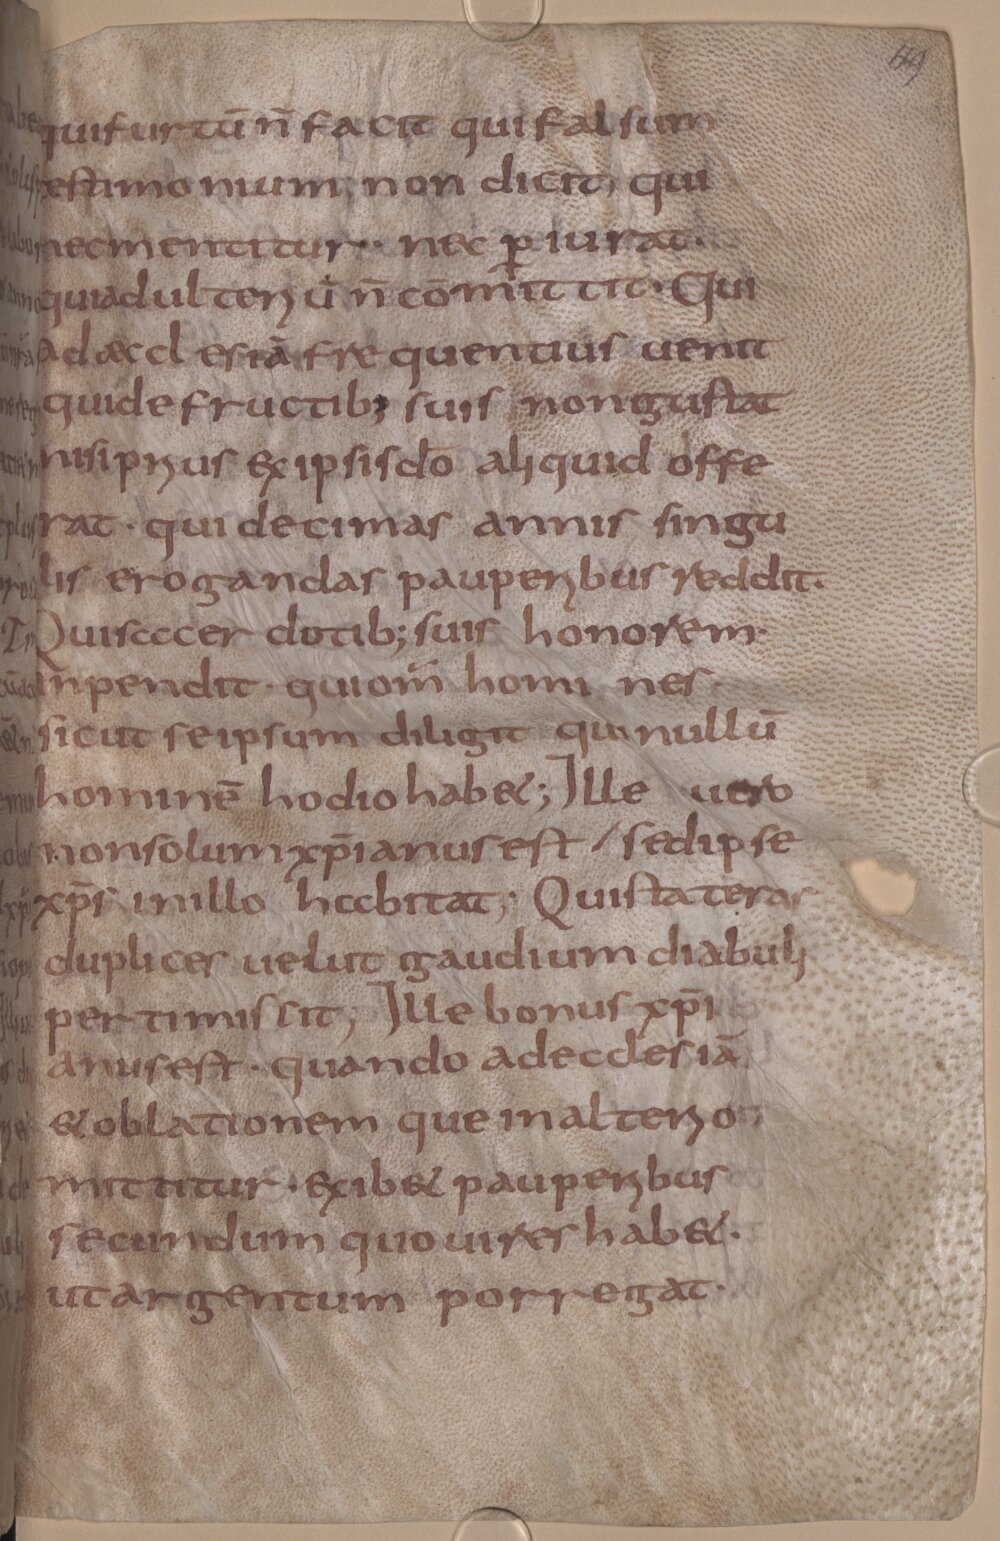 69
qui furtū n̄ facit qui falsum
testimonium non dicit, qui
nec mentitur · nec ꝑiurat ·
qui adulteriū n̄ cōmittit · Qui
ad æcclesiā frequentius uenit
qui de fructib; suis non gustat
nisi prius ex ipsis dō aliquid offe
rat · qui decimas annis singu
lis erogandas pauperibus reddit.
Qui sacerdotib; suis honorem
inpendit · qui om̄s homines
sicut se ipsum diligit qui nullū
hominē hodio hab&; Ille uero
non solum xp̄ianus est / sed ipse
xp̄s in illo habitat; Qui stateras
duplices uelut gaudium diabuli
pertimissit; Ille bonus xp̄i
anus est · quando ad ecclesiā
& oblationem que in alterio
mittitur · exib& pauperibus
secundum quo uires hab& ·
ut argentum porregat ·